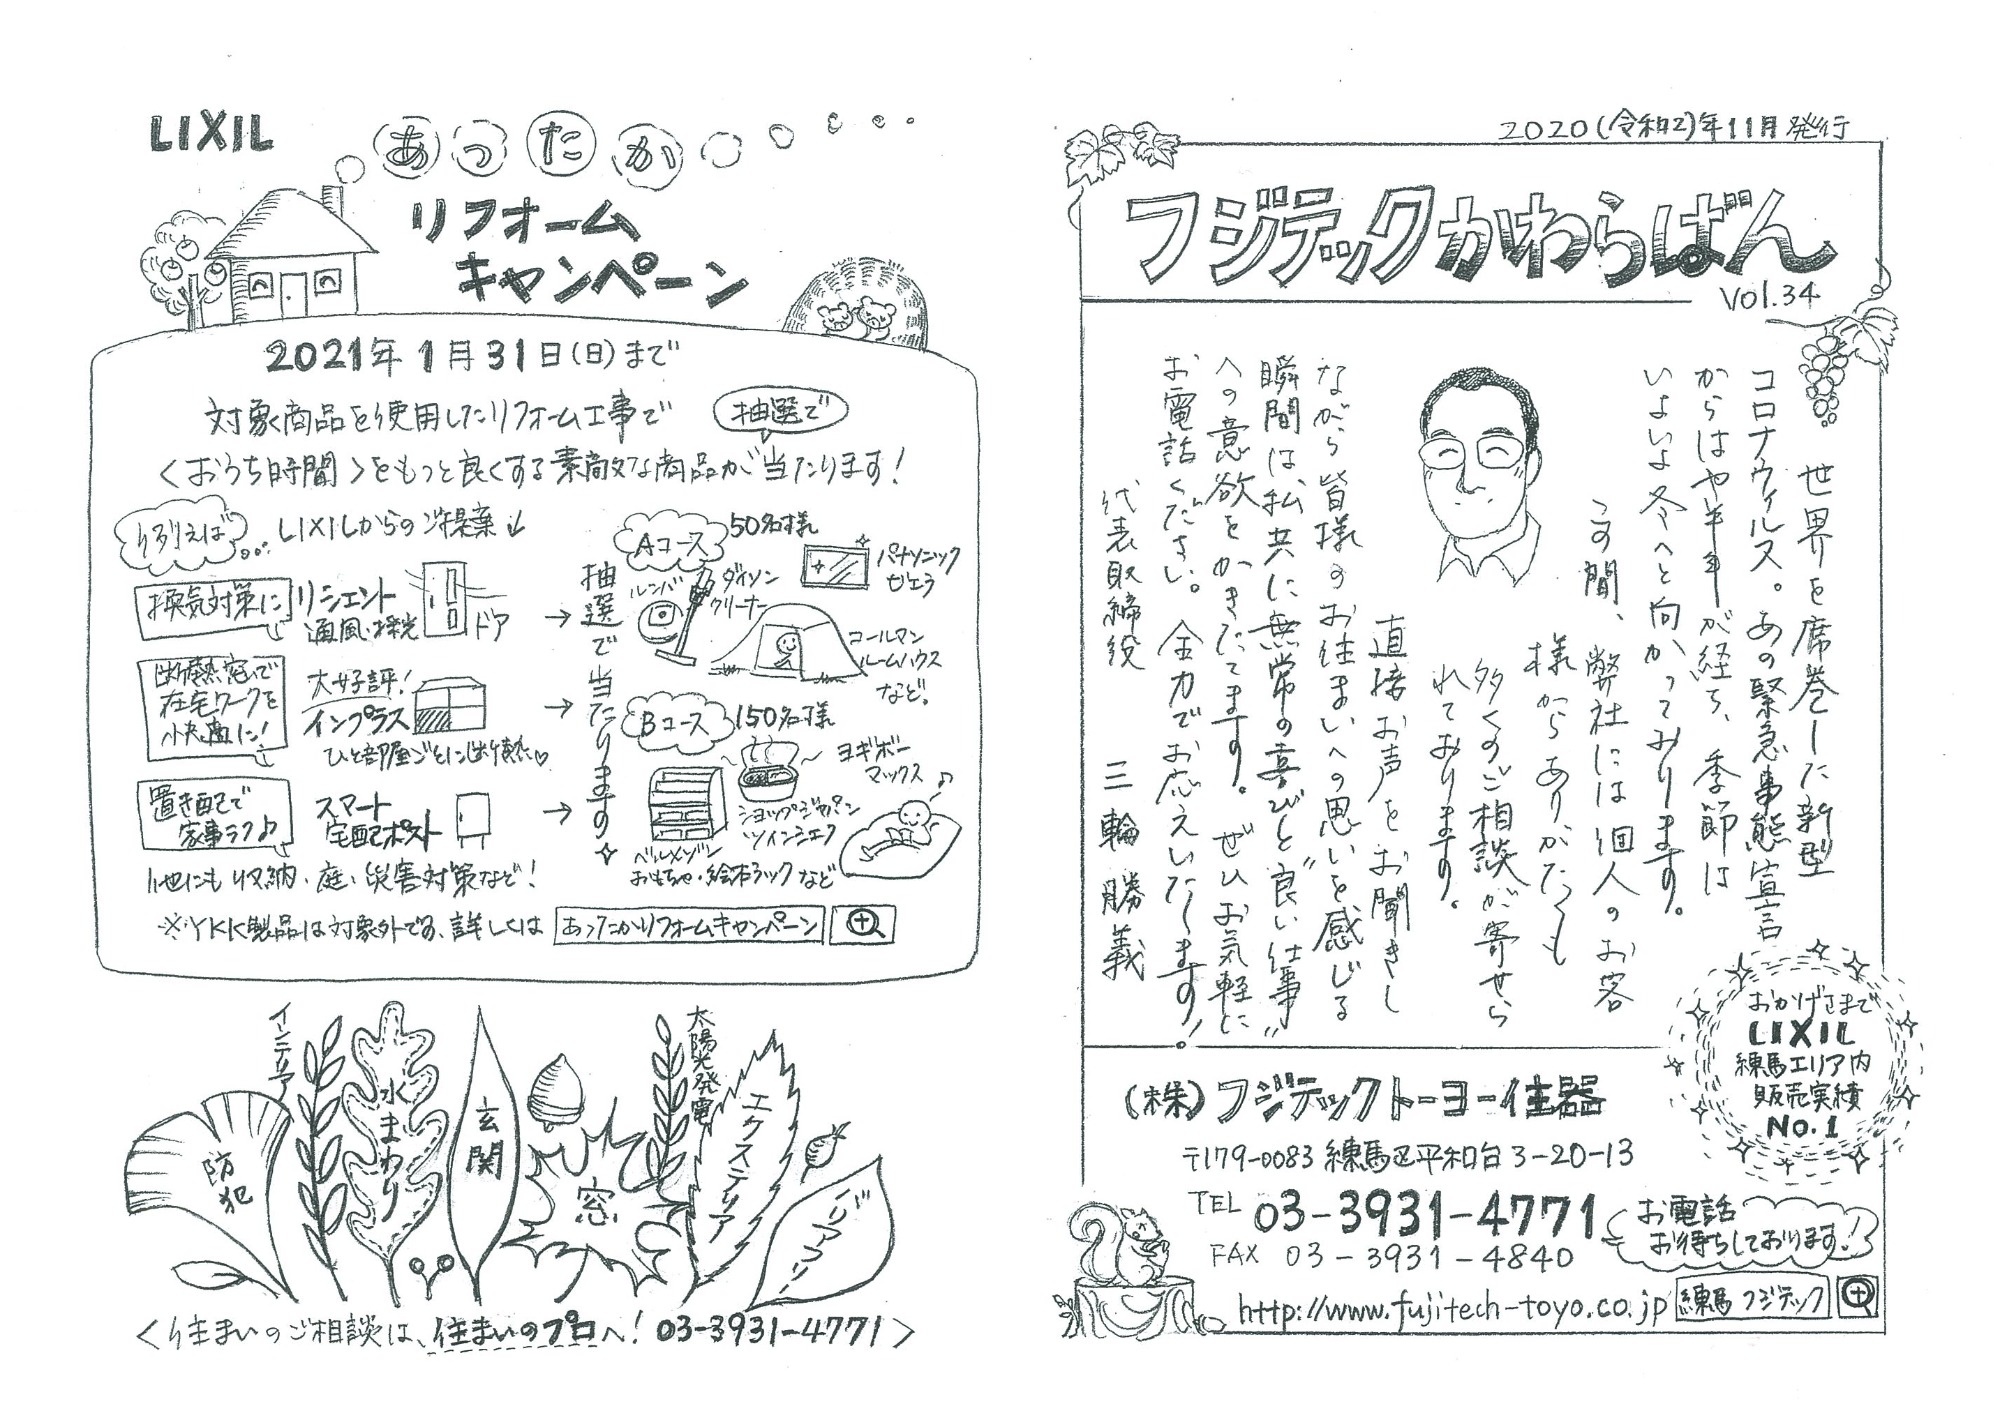 2020(令和2)年11月発行
フジテックかわらばん
Vol.34
世界を席巻した新型
コロナウィルス。あの緊急事態宣言
からはや半年が経ち、季節は
いよいよ冬へと向かってまいります。
この間、弊社には個人のお客
様からありがたくも
多くのご相談が寄せら
れております。
直接お声をお聞きし
ながら皆様のお住まいへの思いを感じる
瞬間は、私共に無常の喜びと”良い仕事”
への意欲をかきたてます。ぜひお気軽に
お電話ください。全力でお応えいたします!
代表取締役 三輪勝義
おかげさまで
LIXIL
練馬エリア内
販売実績
No.1
(株)フジテックトーヨー住器
〒179-0083 練馬区平和台3-20-13
TEL 03-3931-4771
お電話
お待ちしております!
FAX 03-3931-4840
http://www.fujitech-toyo.co.jp
練馬 フジテック
LIXIL
あったか
リフォーム
キャンペーン
2021年1月31日(日)まで
対象商品を使用したリフォーム工事で
抽選で
<おうち時間>をもっと良くする素敵な商品が当たります!
例えば
LIXILからのご提案↓
換気対策に
リシェント
通風・採光
ドア
断熱窓で
在宅ワークを
快適に!
大好評!
インプラス
ひと部屋ごとに断熱♡
置き配で
家事ラク♪
スマート
宅配ポスト
他にも収納・庭・災害対策など!
→
→
→
抽選で当たります
Aコース
50名様
ルンバ
ダイソン
クリーナー
パナソニック
ビエラ
コールマン
ルームハウス
など!
Bコース
150名様
ヨギボー
マックス
ショップジャパン
ツインシェフ
ベルメゾン
おもちゃ・絵本ラック など
※YKK製品は対象外です。詳しくは
あったかリフォームキャンペーン
防犯
インテリア
水まわり
玄関
窓
太陽光発電
エクステリア
バリアフリー
<住まいのご相談は、住まいのプロへ! 03-3931-4771>